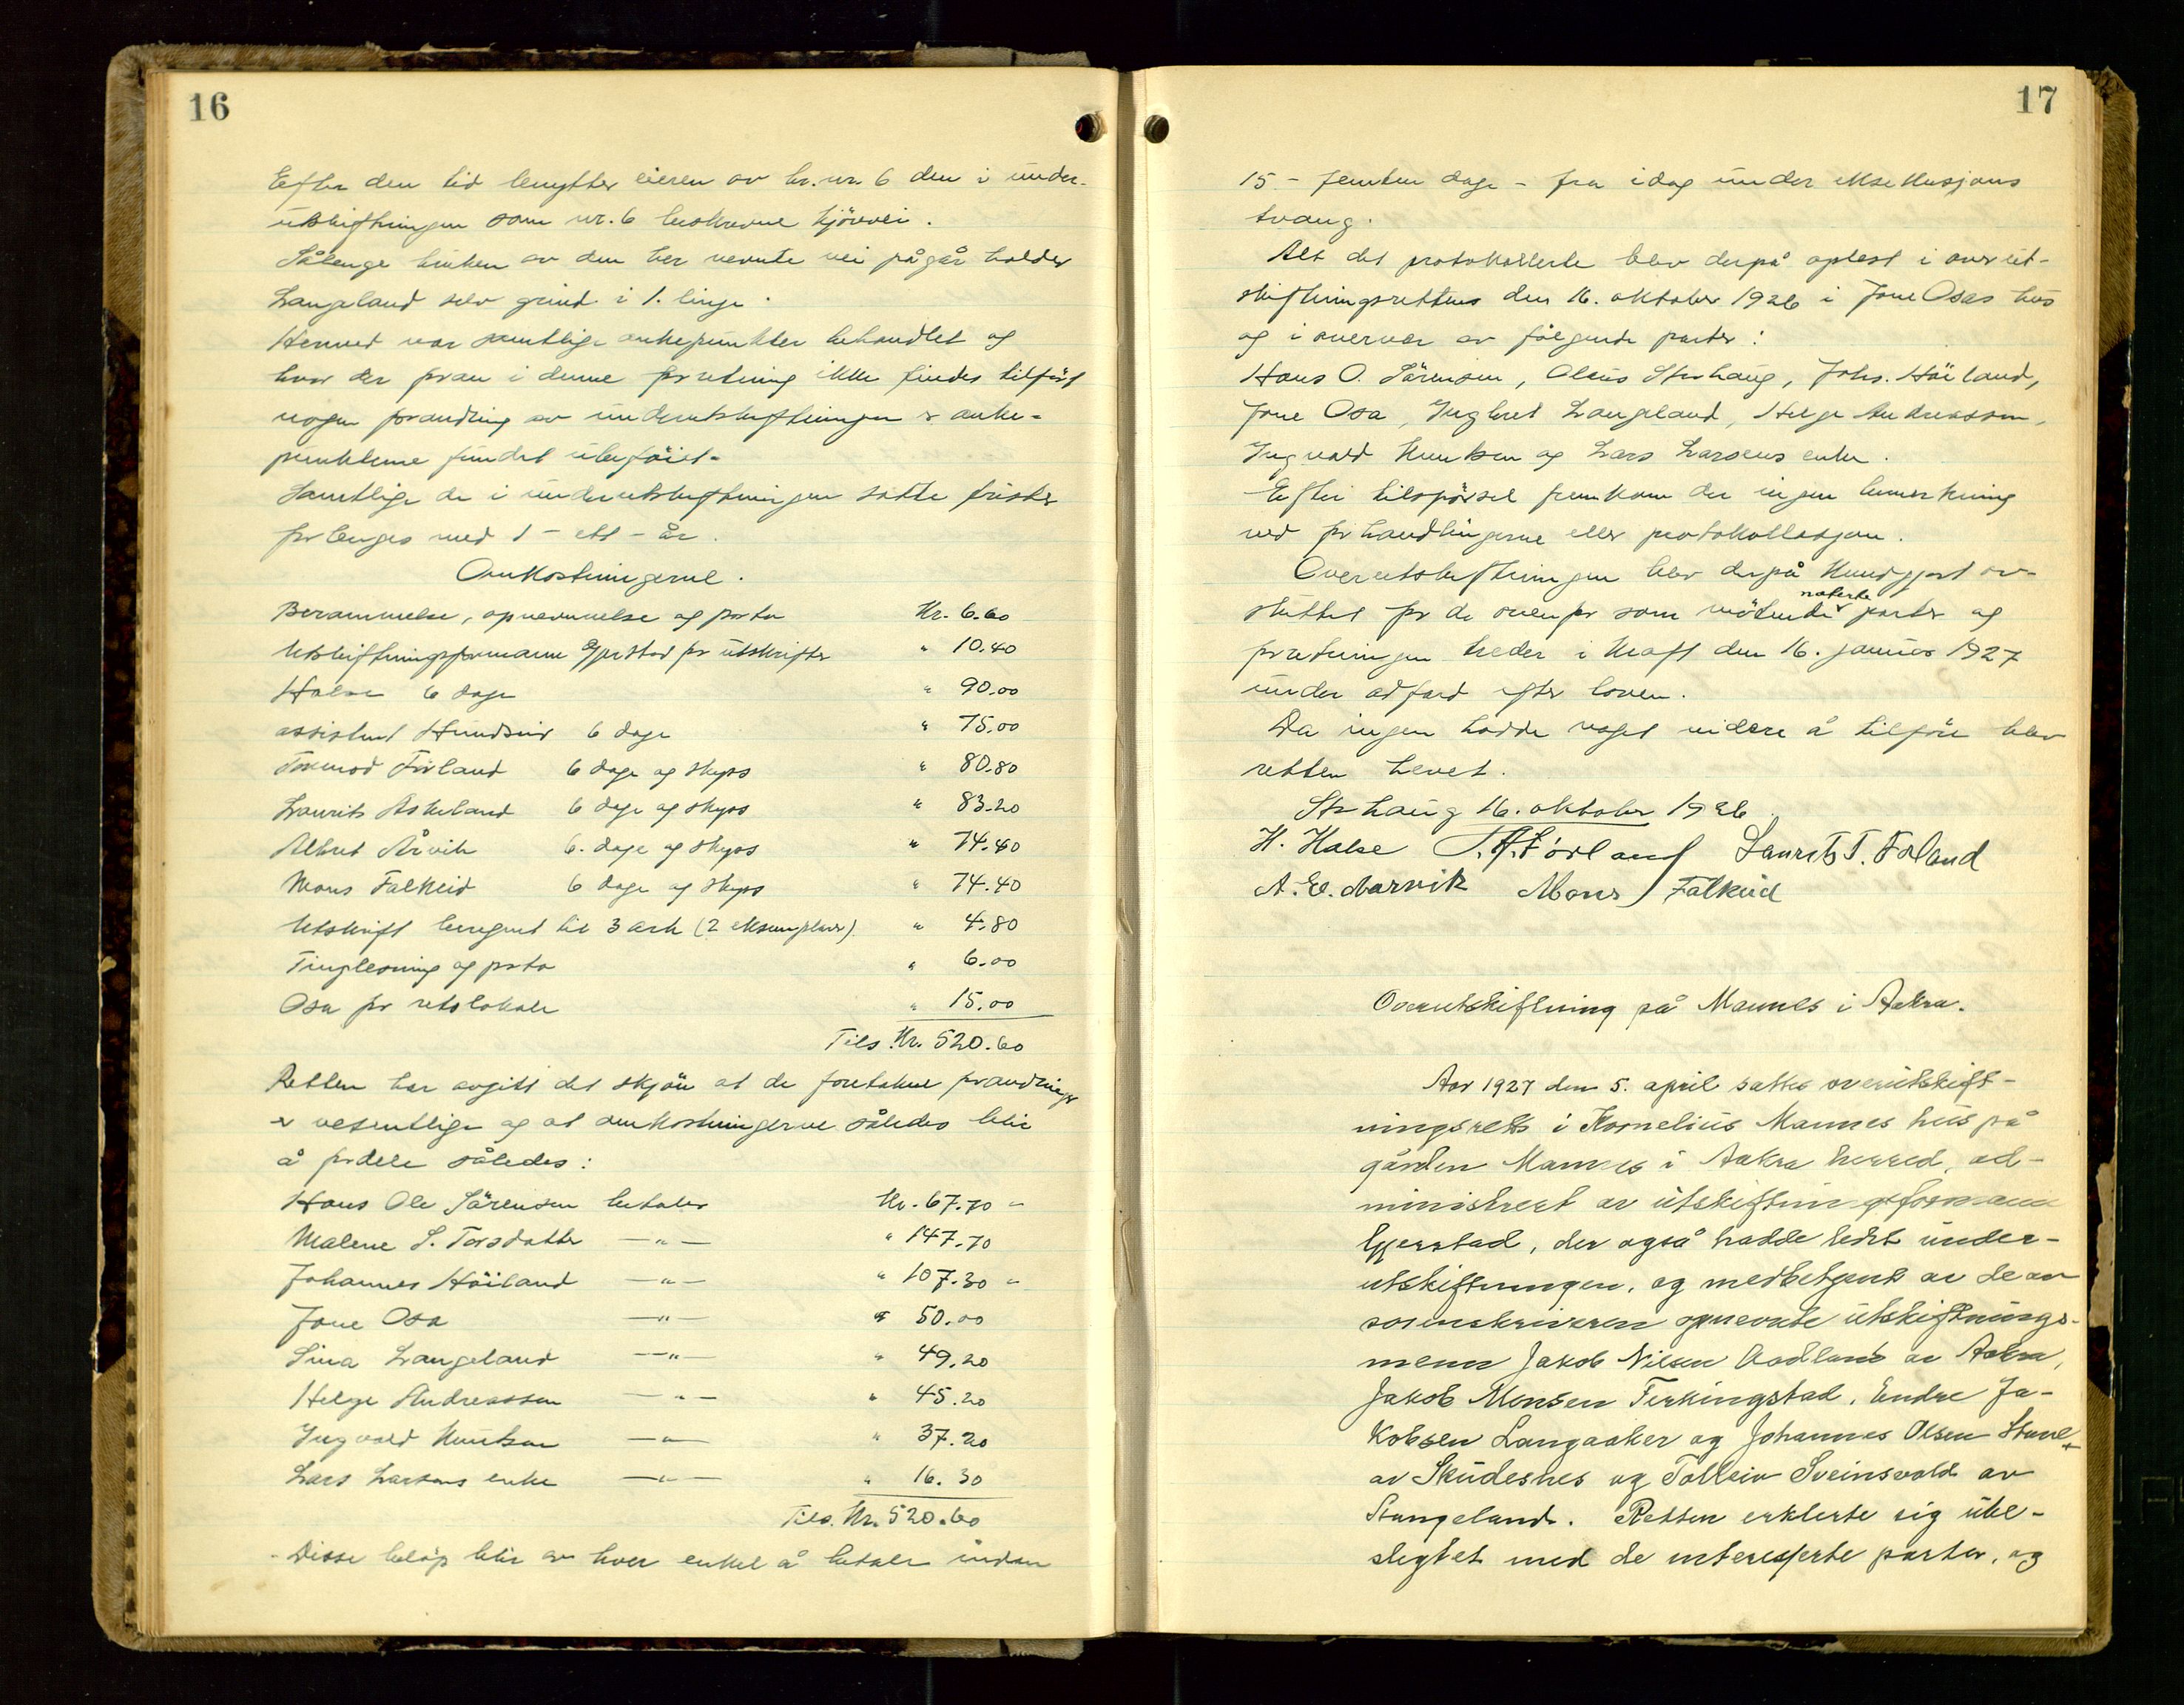 16
Efter den tid benytter eieren av br.nr. 6 den i under-
utskiftningen som nr. 6 beskrevne kjörvei.
Sålenge bruken av den her nevnte vei pågår holder
Langeland selv grind i 1. linje.
Hermed var samtlige ankepunkter behandlet og
hvor der foran i denne forretning ikke findes tilført
nogen forandring av underutskiftningen er anke-
punkterne fundet ubeföiet.
Samtlige de i underutskiftningen satte frister
forlenges med 1 - ett - år.
Omkostningerne.
Berammelse, opnevnelse og porto Kr. 6.60
Utskiftningsformann Gjerstad for utskrifter " 10.40
Halse 6 dage " 90.00
assistent Hundsnes 6 dage " 75.00
Tormod Förland 6 dage og skyss " 80.80
Laurits Askeland 6 dage og skyss " 83.20
Albert Årvik 6 dage og skyss " 74.40
Mons Falkeid 6 dage og skyss " 74.40
Utskrift beregnet til 3 ark (2 eksemplarer) " 4.80
Tinglesning og porto " 6.00
Osa for retslokale " 15.00
Tils. Kr. 520.60
Retten har avgitt det skjön at de foretakne forandringer
er vesentlige og at omkostningerne således blir
å fordele således:
Hans Ole Sörensen betaler Kr. 67.70 -
Malene S. Torsdatter —"— " 147.70
Johannes Höiland —"— " 107.30 -
Jone Osa —"— " 50.00
Sina Langeland —"— " 49.20
Helge Andreassen —"— " 45.20
Ingvald Knutsen —"— " 37.20
Lars Larsens enke —"— " 16.30
Tils. Kr. 520.60
Disse belöp blir av hver enkel å betale innen
17
15 - femten dage - fra idag under eksekusjons
tvang.
Alt det protokollerte blev derpå oplest i overut-
skiftningsretten den 16. oktober 1926 i Jone Osas hus
og i overvær av følgende parter:
Hans O. Sörensen, Olaus Storhaug, Johs. Höiland,
Jone Osa, Ingbret Langeland, Helge Andreassen,
Ingvald Knutsen og Lars Larsens enke.
Efter tilspörsel fremkom der ingen bemerkning
ved forhandlingerne eller protokollasjonen.
Overutskiftningen blev derpå kundgjort av-
sluttet for de ovenfor som mötende noterte parter og
forretningen treder i kraft den 16. januar 1927
under adferd efter loven.
Da ingen hadde noget videre å tilföre blev
retten hevet.
Storhaug 16. oktober 1926
H. Halse T. A. Förland Laurits T. Førland
A. E. Aarvik Mons Falkeid
Overutskiftning på Mannes i Aakra.
Aar 1927 den 5. april sattes overutskift-
ningsrett i Kornelius Mannes hus på
gården Mannes i Aakra herred, ad-
ministrert av utskiftningsformann
Gjerstad, der også hadde ledet under-
utskiftningen, og medbetjent av de av
sorenskriveren opnevnte utskiftnings-
menn Jakob Nilsen Aadland av Aakra,
Jakob Monsen Ferkingstad, Endre Ja-
kobsen Langaaker og Johannes Olsen
av Skudesnes og Tolleiv Sveinsvold av
Stangeland. Retten erklerte sig ube-
slegtet med de interesserte parter, og